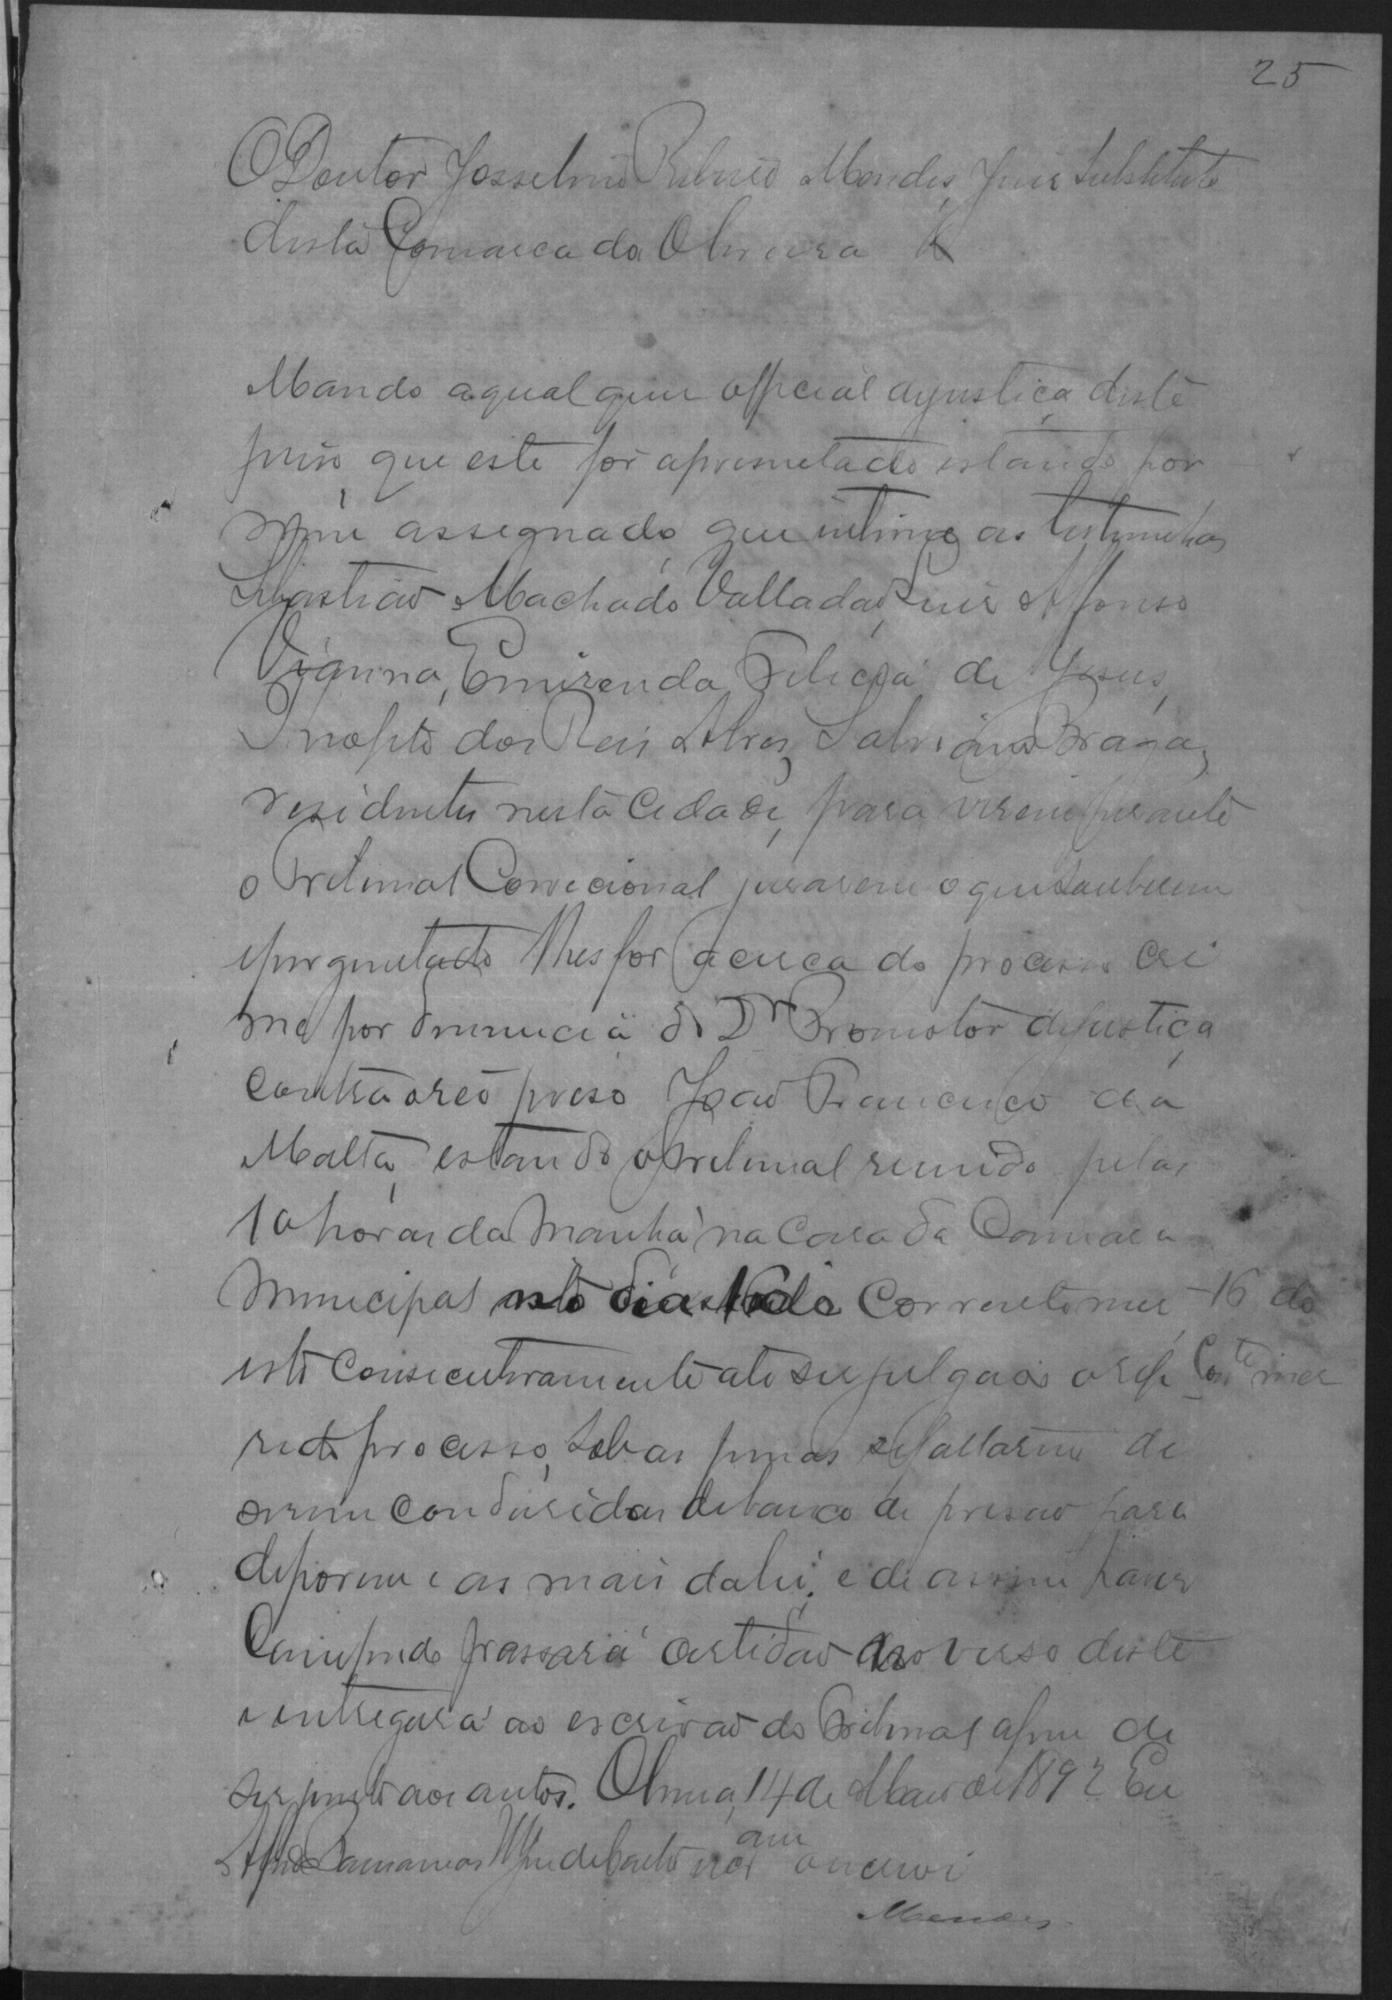 25
O Doutor Josselino Ribeiro Mendes, Juiz Substituto
desta Comarca da Oliveira
Mando a qualquer official dejustiça deste
juiso que este for apresentado estando por
mim assegnado que intime as testemunhas
Sebastião Machado Valladão, Luiz Affonso
Vianna, Emirenda Felicia de Jesus,
dos Reis Alves, Salviano Braga,
residentes nesta Cidade, para virem perante
o Tribunal Correcional jurarem o que souberem
e perguntado lhes for acerca do processo cri
me por denuncia do Dr Promotor dejustiça
contra o reo preso João Francisco da
Malta, estando o Tribunal reunido pelas
10 horas da manhã na Casa da Camara
Municipal neste dia 16 do Corrente mez 16 do
este Consecutivamente até ser julgado o refe Conte mez
rido processo, sob as penas se faltarem de
serem condusidas debaixo de prisão para
deporem e as mais da lei; e de assim haver
Cumprido passará certidão no verso deste
e entregará ao escrivão do Tribunal afim de
ser junto aos autos. Olivra, 14 de Maio de 1892 Eu
que
escrevi
Mendes